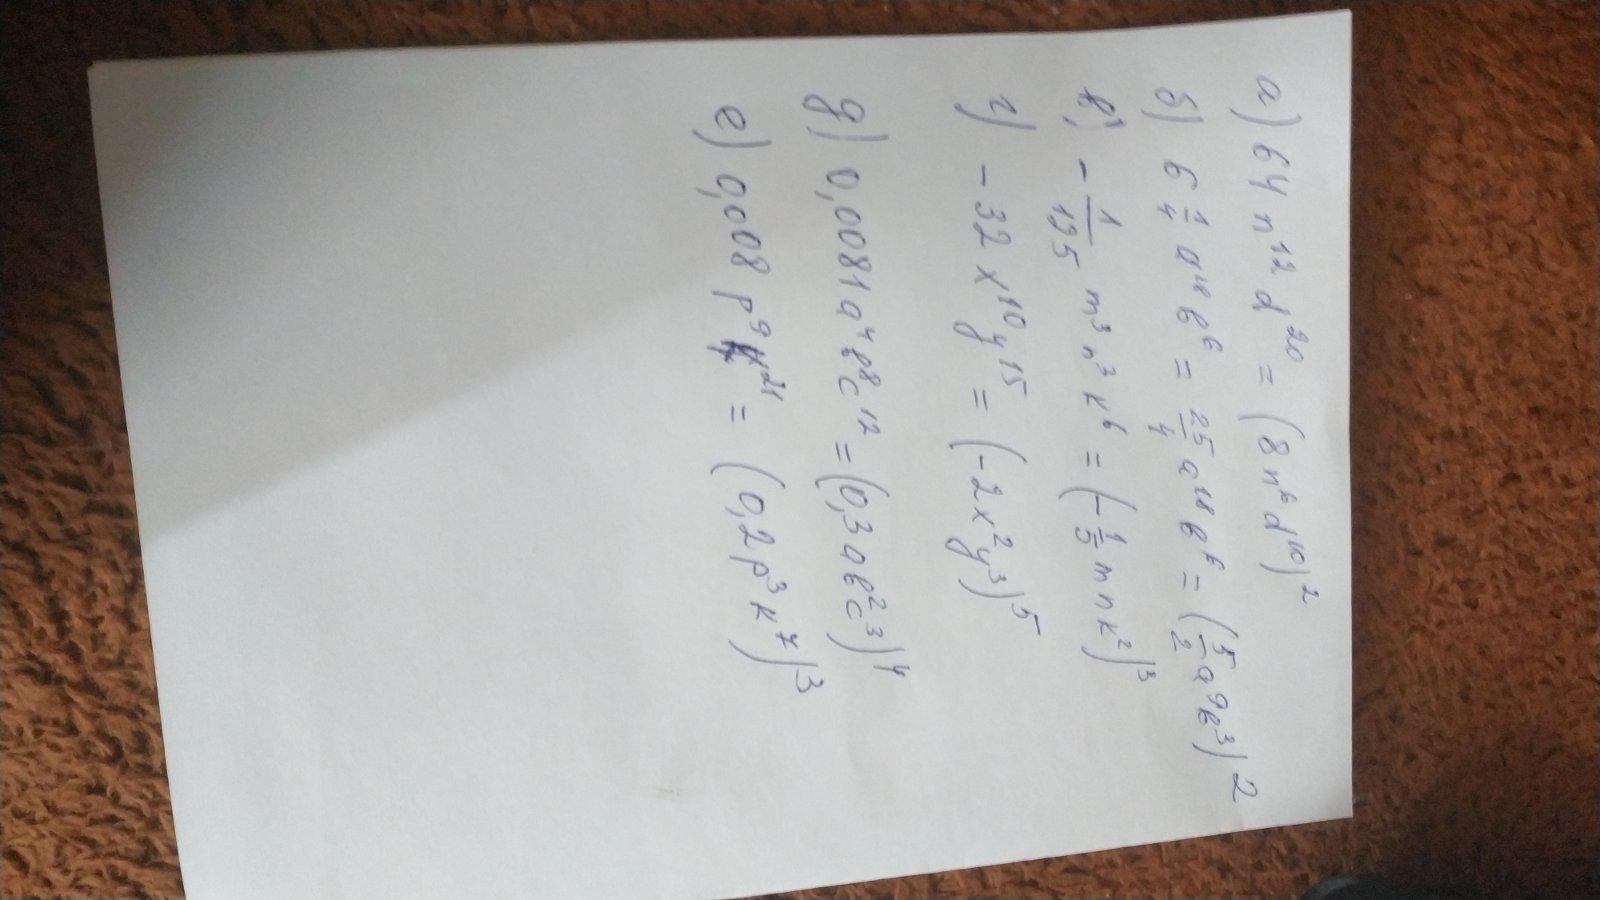 а) 64 n¹² d²⁰ = (8 n⁶ d¹⁰)²
б) 6 1/4 a¹⁸ b⁶ = 25/4 a¹⁸ b⁶ = (5/2 a⁹ b³)²
в) - 1/125 m³ n³ k⁶ = (- 1/5 m n k²)³
г) - 32 x¹⁰ y¹⁵ = (-2x²y³)⁵
д) 0,0081 a⁴ b⁸ c¹² = (0,3 a b² c³)⁴
е) 0,008 p⁹ k²¹ = (0,2 p³ k⁷)³